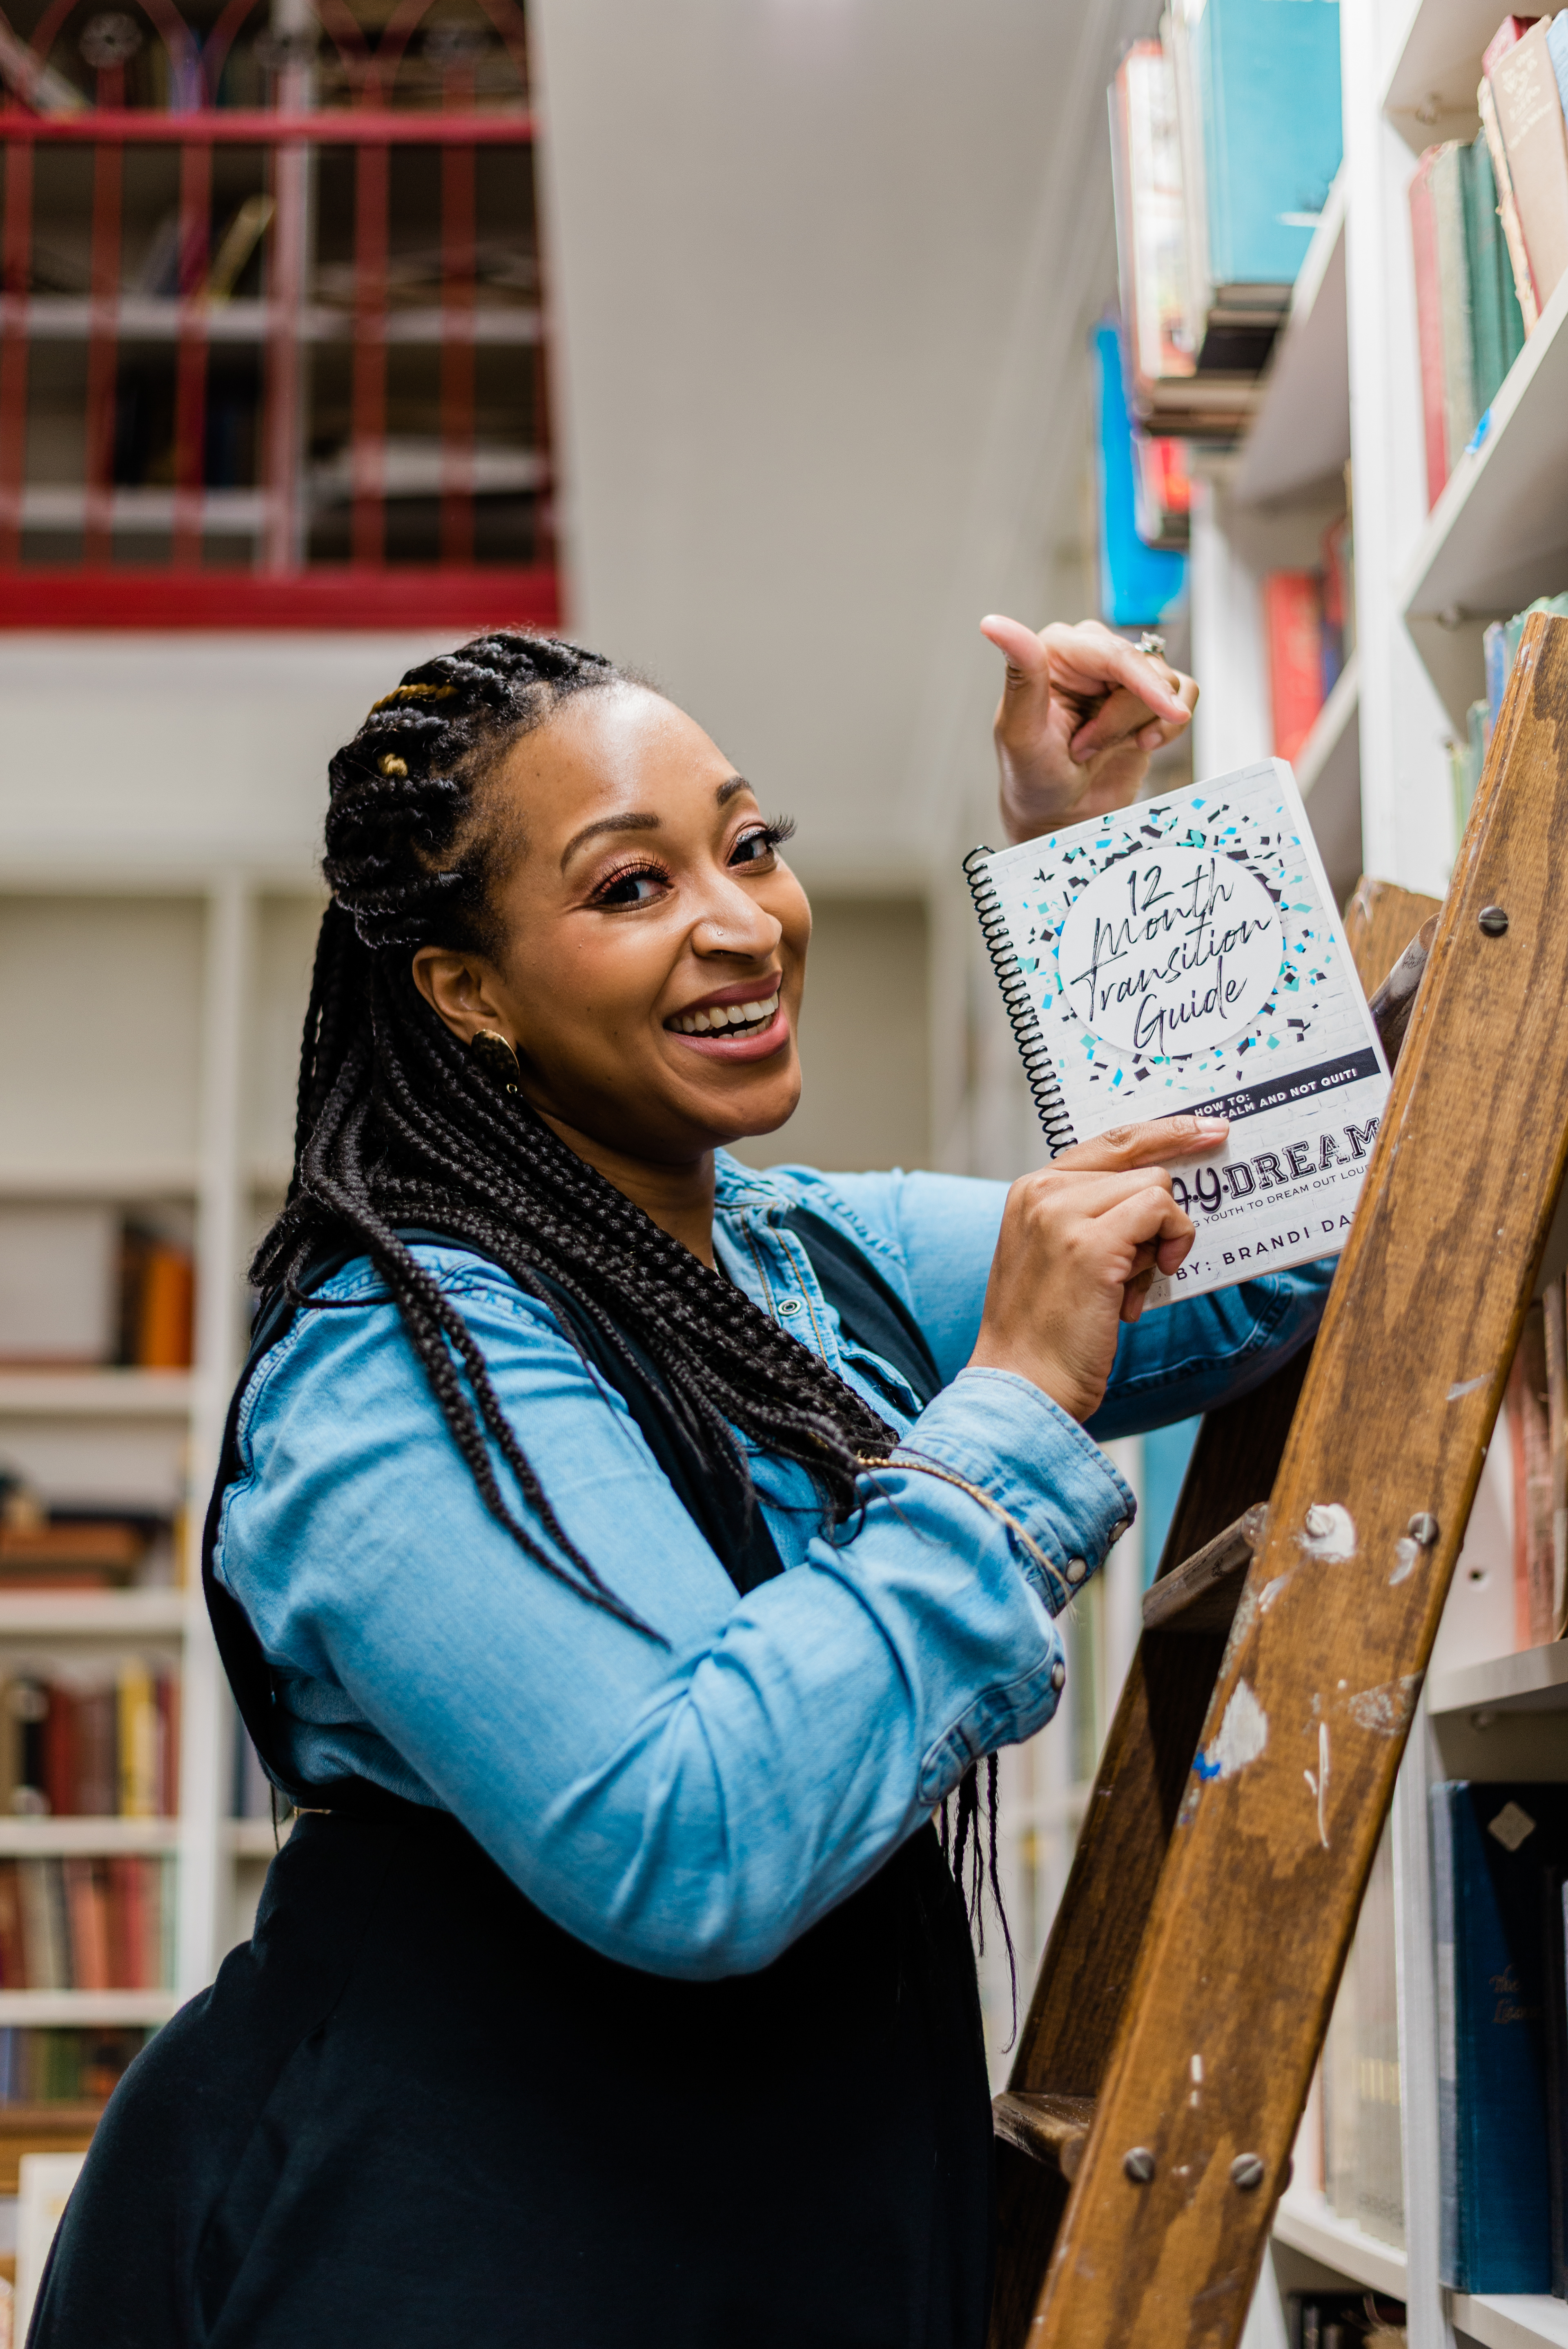 12
Month
Transition
Guide
HOW TO:
CALM AND NOT QUIT!
DREAM
YOUTH TO DREAM OUT
BY: BRANDI